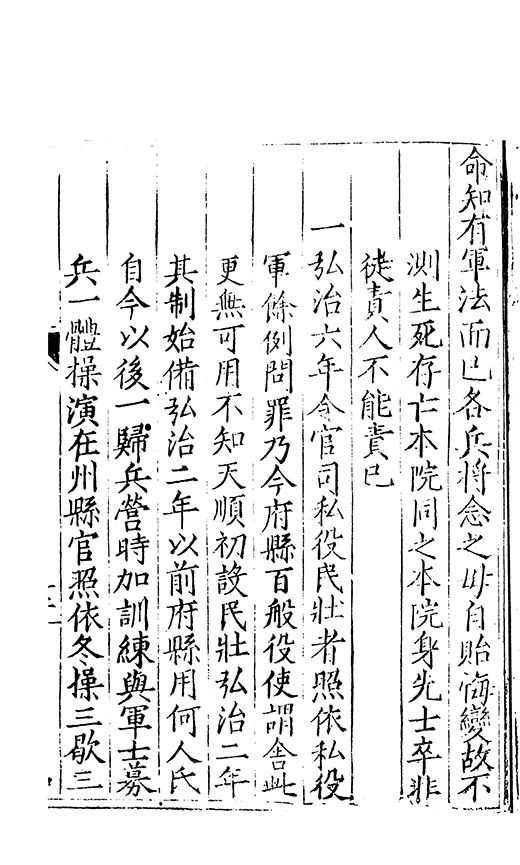 命知有軍法而已各兵將念之毋自貽悔變故不
測生死存亡本院同之本院身先士卒非
徒責人不能責已
一弘治六年令官司私役民壯者照依私役
軍條例問罪乃今府縣百般役使謂舎此
更無可用不知天順初設民壯弘治二年
其制始備弘治二年以前府縣用何人氏
自今以後一歸兵營時加訓練與軍士募
兵一體操演在州縣官照依冬操三歇三